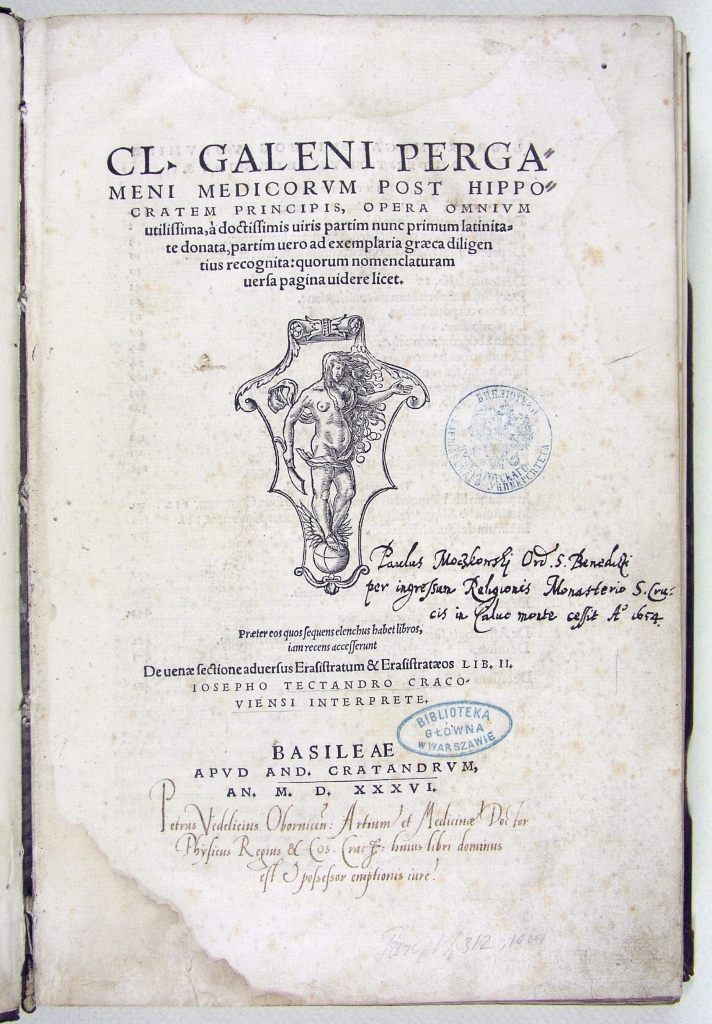 CL. GALENI PERGA⸗
MENI MEDICORVM POST HIPPO⸗
CRATEM PRINCIPIS, OPERA OMNIVM
utilissima, à doctissimis uiris partim nunc primum latinita⸗
te donata, partim uero ad exemplaria græca diligen
tius recognita: quorum nomenclaturam
uersa pagina uidere licet.
БИБЛІОТЕКА УНИВЕРСИТЕТА
Paulus Moczkowski Ord. S. Benedicti
per ingressum Religionis Monasterio S. Cru⸗
cis in Caluo monte cessit Aº 1654.
Præter eos quos sequens elenchus habet libros,
iam recens accesserunt
De uenæ sectione aduersus Erasistratum & Erasistratæos LIB. II.
IOSEPHO TECTANDRO CRACO⸗
VIENSI INTERPRETE.
BIBLIOTEKA
GŁÓWNA
W WARSZAWIE
BASILEAE
APVD AND. CRATANDRVM,
AN. M. D. XXXVI.
Petrus Vedelicius Obornicen: Artium et Medicinæ Doctor
Physicus Regius & Cos. Crac: huius libri dominus
est & possessor emptionis iure.